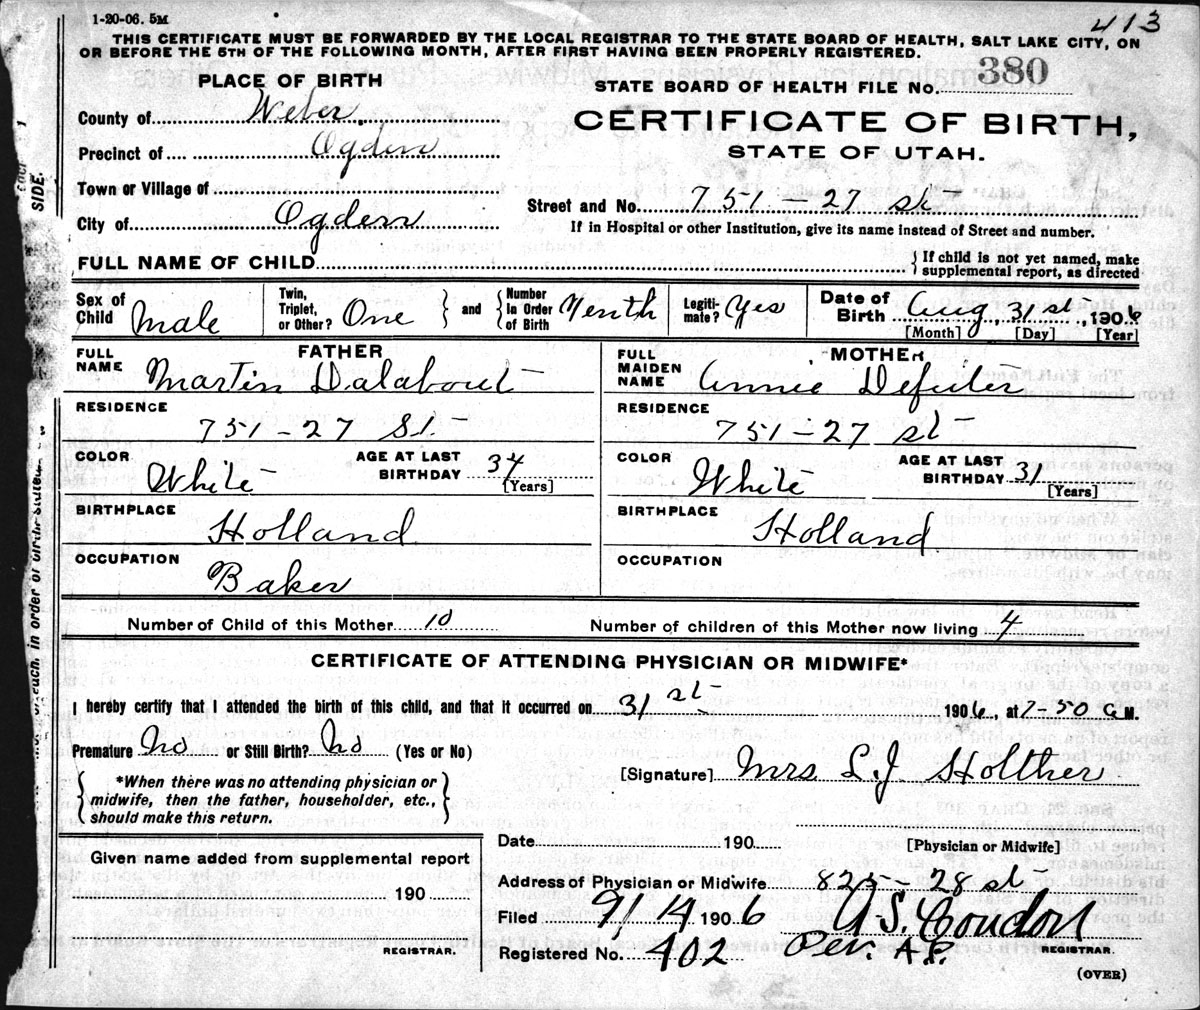 1-20-06. 5M
413
THIS CERTIFICATE MUST BE FORWARDED BY THE LOCAL REGISTRAR TO THE STATE BOARD OF HEALTH, SALT LAKE CITY, ON
OR BEFORE THE 5TH OF THE FOLLOWING MONTH, AFTER FIRST HAVING BEEN PROPERLY REGISTERED.
PLACE OF BIRTH
STATE BOARD OF HEALTH FILE No. 380
County of Weber.
CERTIFICATE OF BIRTH,
Precinct of Ogden
STATE OF UTAH.
Town or Village of
Street and No. 751 - 27 st
City of Ogden
If in Hospital or other Institution, give its name instead of Street and number.
FULL NAME OF CHILD
{ If child is not yet named, make
supplemental report, as directed
Sex of Child Male
Twin, Triplet, or Other? One } and { Number In Order of Birth Tenth
Legiti-mate? Yes
Date of Birth Aug, 31st, 1906
[Month] [Day] [Year]
FATHER
FULL NAME Martin Dalabout
MOTHER
FULL MAIDEN NAME Annie Defeiter
RESIDENCE
751 - 27 St.
RESIDENCE
751 - 27 st
COLOR White
AGE AT LAST BIRTHDAY 34
[Years]
COLOR White
AGE AT LAST BIRTHDAY 31
[Years]
BIRTHPLACE
Holland
BIRTHPLACE
Holland
OCCUPATION
Baker
OCCUPATION
Number of Child of this Mother 10
Number of children of this Mother now living 4
CERTIFICATE OF ATTENDING PHYSICIAN OR MIDWIFE*
I hereby certify that I attended the birth of this child, and that it occurred on 31 st 1906, at 7-50 a M.
Premature No or Still Birth? No (Yes or No)
[Signature] Mrs L. J Holther
{ *When there was no attending physician or
midwife, then the father, householder, etc.,
should make this return. }
Date 190
[Physician or Midwife]
Given name added from supplemental report
190
REGISTRAR.
Address of Physician or Midwife 825 - 28 st
Filed 9/14 1906 A S. Condon
Registered No. 402 Per. A.P. REGISTRAR.
(OVER)
SIDE.